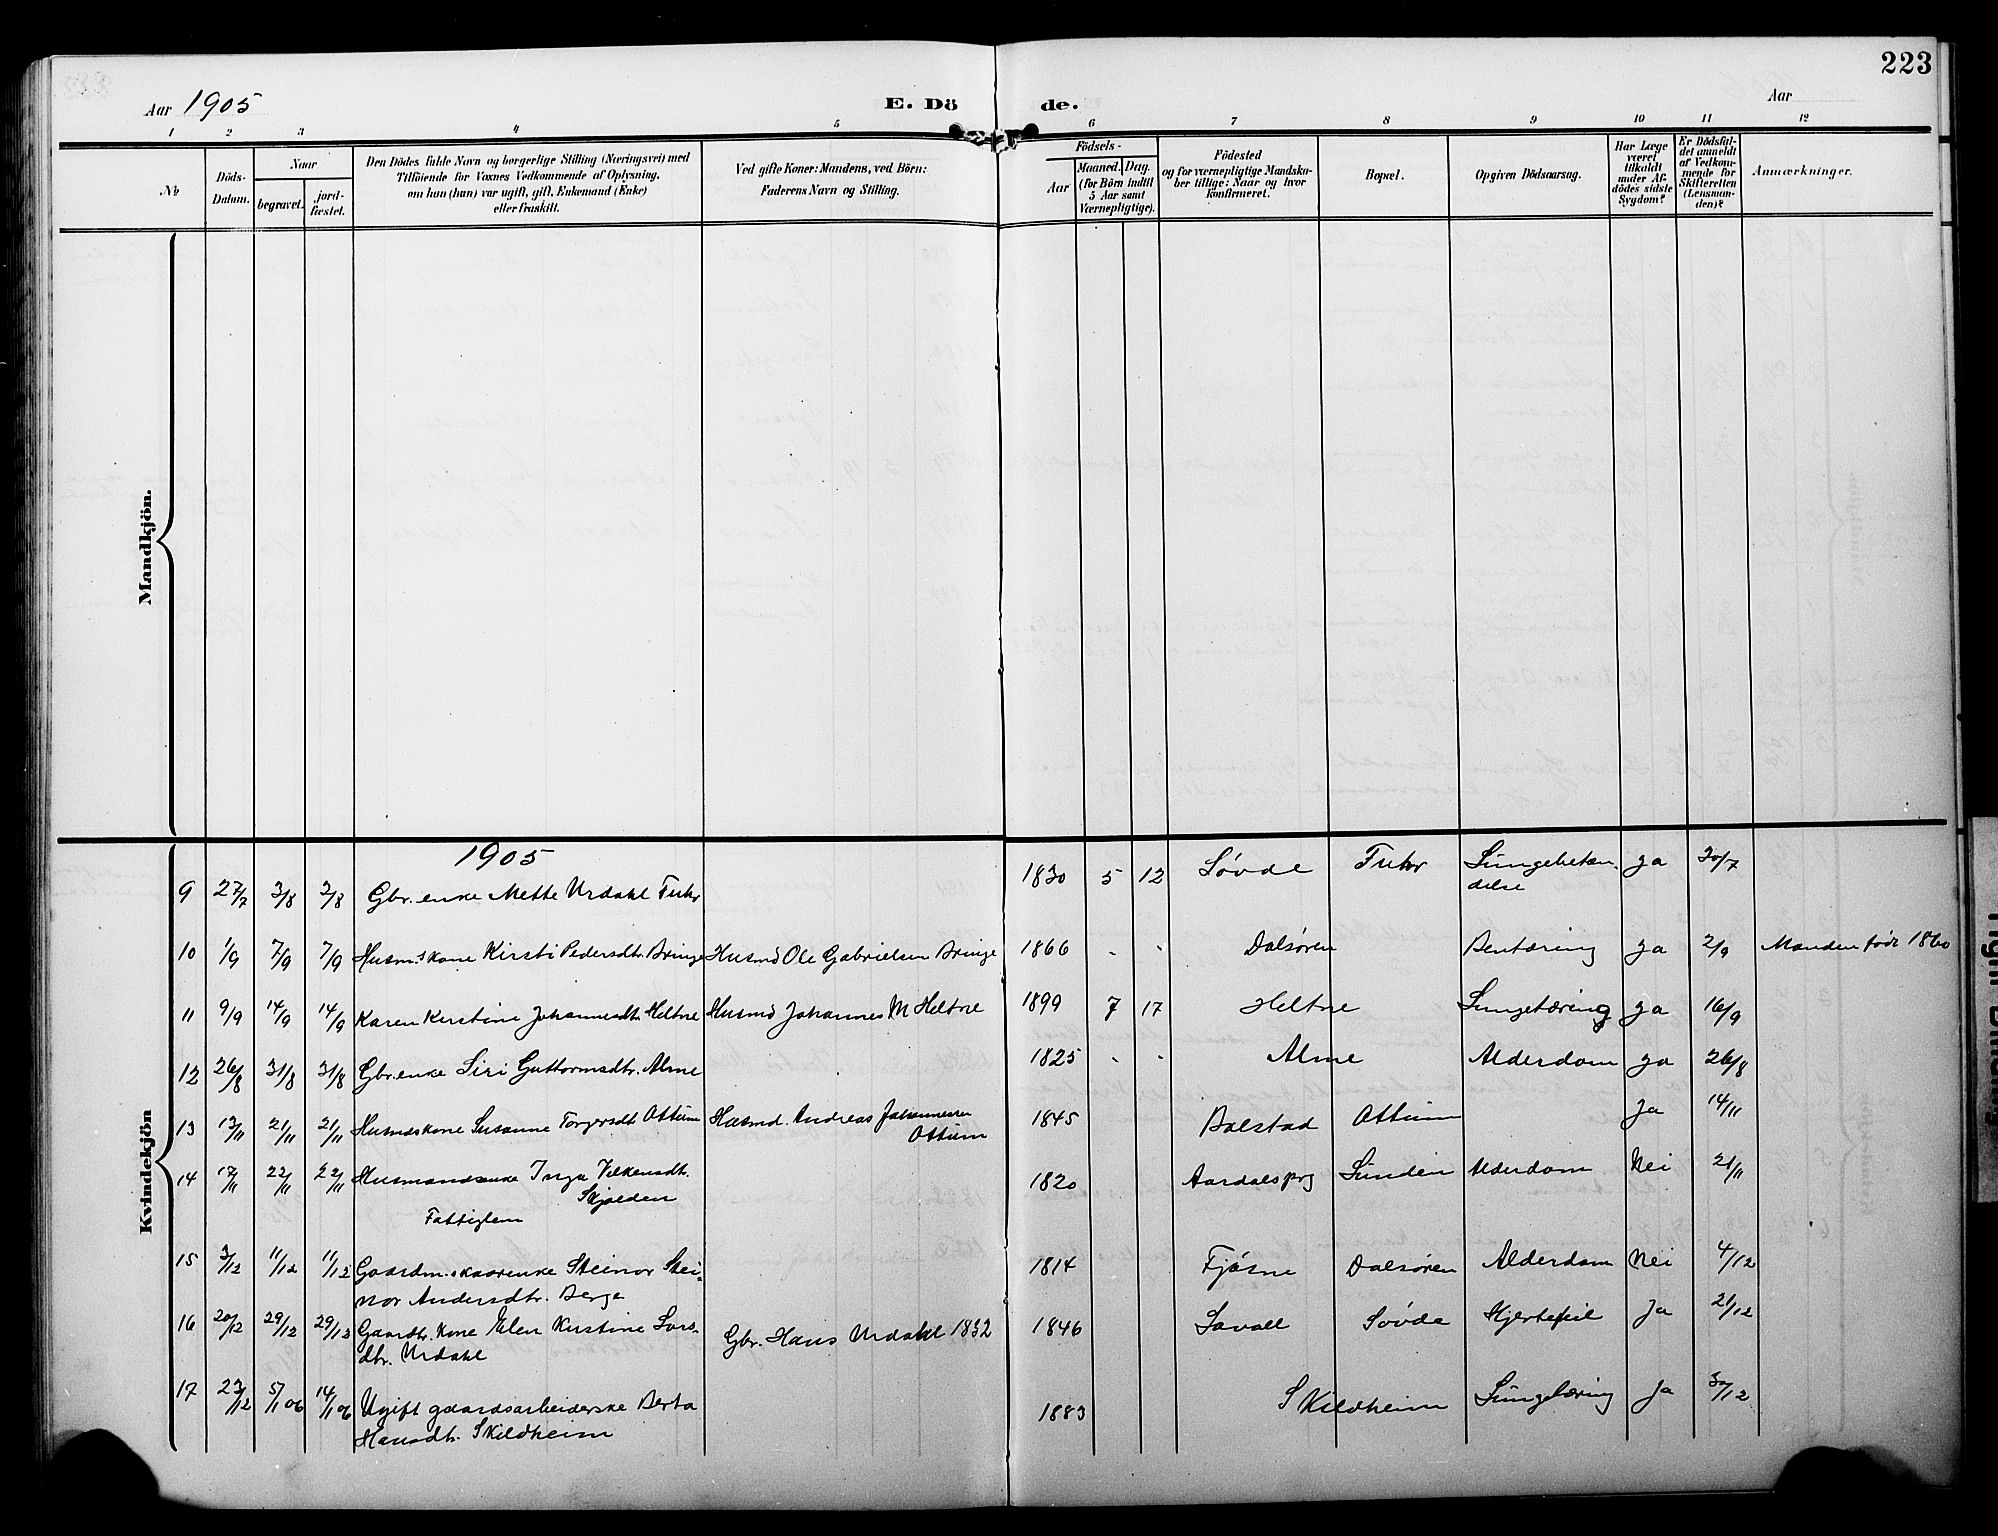 223
Aar 1905
E. Dö de.
Aar
1 2 3 4 5 6 7 8 9 10 11 12
No
Döds-Datum.
Naar
begravet.
jord-fæstet.
Den Dödes fulde Navn og borgerlige Stilling (Næringsvei) med
Tilföiende for Voxnes Vedkommende af Oplysning,
om han (hun) var ugift, gift, Enkemand (Enke)
eller fraskilt.
Ved gifte Koner: Mandens, ved Börn:
Faderens Navn og Stilling.
Födsels-
Aar
Maaned. Dag.
(for Börn indtil
5 Aar samt
Værnepligtige).
Födested
og for værnepligtige Mandska-
ber tillige: Naar og hvor
konfirmeret.
Bopæl.
Opgiven Dödsaarsag.
Har Læge
været
tilkaldt
under Af-
dödes sidste
Sygdom?
Er Dödsfal-
det anmeldt
af Vedkom-
mende for
Skifteretten
(Lensman-
den)?
Anmærkninger.
Mandkjön.
Kvindekjön
1905
9 27/7 3/8 3/8 Gbr. enke Mette Urdahl Fuhr 1830 5 12 Søvde Fuhr Lungebetæn-
delse ja 30/7
10 1/9 7/9 7/9 Husm.skone Kirsti Pedersdtr. Bringe Husmd Ole Gabrielsen Bringe 1866 - - Dalsøren Bentæring ja 2/9 Manden født 1860
11 9/9 14/9 14/9 Karen Kirstine Johannesdtr Heltne Husmd Johannes M Heltne 1899 7 17 Heltne Lungetæring ja 16/9
12 26/8 31/8 31/8 Gbr. enke Siri Guttormsdtr. Alme 1825 - - Alme Alderdom ja 26/8
13 13/11 21/11 21/11 Husmdskone Susanne Torgersdt Ottum Husmd. Andreas Johannessen
Ottum 1845 Bolstad Ottum Ja 14/11
14 17/11 22/11 22/11 Husmandsenke Inga Vilkensdt.
Skjolden
Fattiglem 1820 Aardalsprg Sunden Alderdom Nei 21/11
15 3/12 11/12 11/12 Gaardm.skaarenke Steinor Stei-
nor Andersdtr. Berge 1814 Fjøsne Dalsøren Alderdom Nei 4/12
16 20/12 29/12 29/12 Gaardbr. kone Elen Kirstine Lars-
dtr. Urdahl Gbr. Hans Urdahl 1832 1846 Lavoll Søvde Hjertefeil Ja 21/12
17 23/12 5/1 06 14/1 06 Ugift gaardsarbeiderske Berta
Hansdtr. Skildheim 1883 Skildheim Lungetæring Ja 30/12